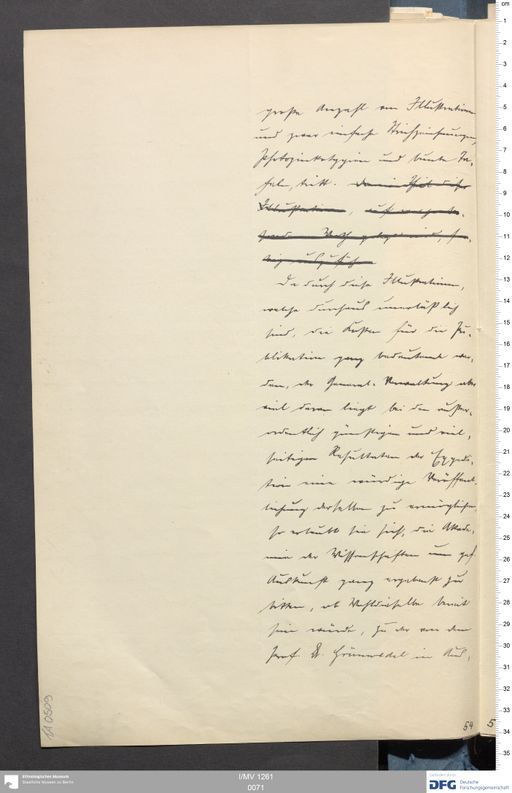 große Anzahl von Illustrationen
und zwar einfache Strichzeichnungen,
Photozinkotypien und bunte Ta-
feln, tritt.
Da durch diese Illustrationen,
welche durchaus unerläßlich
sind, die Kosten für die Pu-
blikation ganz bedeutend wer-
den, der General-Verwaltung aber
viel daran liegt bei den außer-
ordentlich günstigen und viel-
seitigen Resultaten der Expedi-
tion eine würdige Veröffent-
lichung derselben zu ermöglichen
so erlaubt sie sich, die Akade-
mie der Wissenschaften um gef.
Auskunft ganz ergebenst zu
bitten, ob Wohldieselbe bereit
sein würde, zu der von dem
Prof. Dr. Grünwedel in Aus-
54
5
I/MV 1261
0071
Ethnologisches Museum
Staatliche Museen zu Berlin
DFG Deutsche
Forschungsgemeinschaft